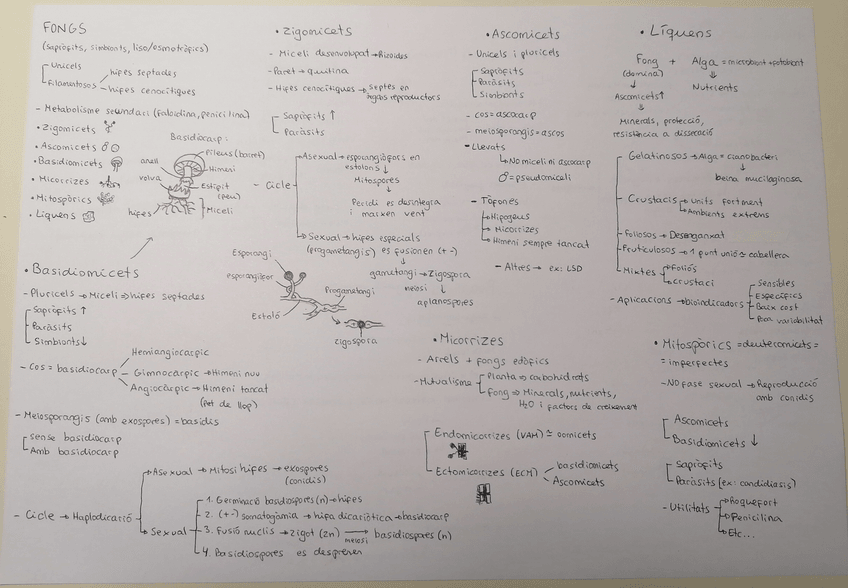 FONGS
(sapròfits, simbionts, liso/osmotròfics)
Unicels
Filamentosos
hifes septades
hifes cenocítiques
- Metabolisme secundari (faloidina, penicilina)
• Zigomicets
• Ascomicets
• Basidiomicets
• Micorrizes
• Mitospòrics
• Líquens
Basidiocarp:
Pileus (barret)
anell
Himeni
volva
Estípit (peu)
hifes
Miceli
• Basidiomicets
- Pluricels → Miceli ⇒ hifes septades
Sapròfits ↑
Paràsits
Simbionts ↓
- Cos = basidiocarp
Hemiangiocàrpic
Gimnocàrpic → Himeni nou
Angiocàrpic → Himeni tancat
(Pet de llop)
- Meiosporangis (amb exospores) = basidis
sense basidiocarp
Amb basidiocarp
- Cicle → Haplodicarió
Asexual → Mitosi hifes → exospores
(conidis)
Sexual
1. Germinació basidiospores (n) → hifes
2. (+-) somatogàmia → hifa dicariòtica → basidiocarp
3. Fusió nuclis → zigot (2n) → basidiospores (n)
meiosi
4. Basidiospores es desprenen
• Zigomicets
- Miceli desenvolupat → Rizoides
- Paret → quitina
- Hifes cenocítiques → septes en
òrgans reproductors
Sapròfits ↑
Paràsits
- Cicle
Asexual → esporangiòfors en
estolons ↓
Mitospores
Peridi es desintegra
i marxen vent
Sexual → hifes especials
(progametangis) es fusionen (+ -)
gametangi → Zigospora
meiosi
aplanospores
Esporangi
esporangiòfor
Estoló
Progametangi
zigospora
• Ascomicets
- Unicels i pluricels
Sapròfits
Paràsits
Simbionts
- cos = ascocarp
- meiosporangis = ascos
- Llevats
No miceli ni ascocarp
♂ = pseudomiceli
- Tòfones
Hipogeus
Micorrizes
Himeni sempre tancat
- Altres → ex: LSD
• Micorrizes
- Arrels + fongs edàfics
- Mutualisme
Planta ⇒ carbohidrats
Fong ⇒ Minerals, nutrients,
H2O i factors de creixement
Endomicorrizes (VAM) ≃ oomicets
Ectomicorrizes (ECM)
basidiomicets
Ascomicets
• Líquens
Fong + Alga = micobiont + fotobiont
(domina)
Nutrients
Ascomicets ↑
Minerals, protecció,
resistència a dissecació
Gelatinosos → Alga = cianobacteri
beina mucilaginosa
Crustacis
units fortment
Ambients extrems
Foliosos → Desenganxat
Fruticulosos → 1 punt unió ≃ cabellera
Mixtes
Foliós
crustaci
- Aplicacions → bioindicadors
Sensibles
Específics
Baix cost
Poca variabilitat
• Mitospòrics = deuteromicets =
= imperfectes
- NO fase sexual → Reproducció
amb conidis
Ascomicets
Basidiomicets ↓
Sapròfits
Paràsits (ex: candidiasis)
- Utilitats
Roquefort
Penicilina
Etc...